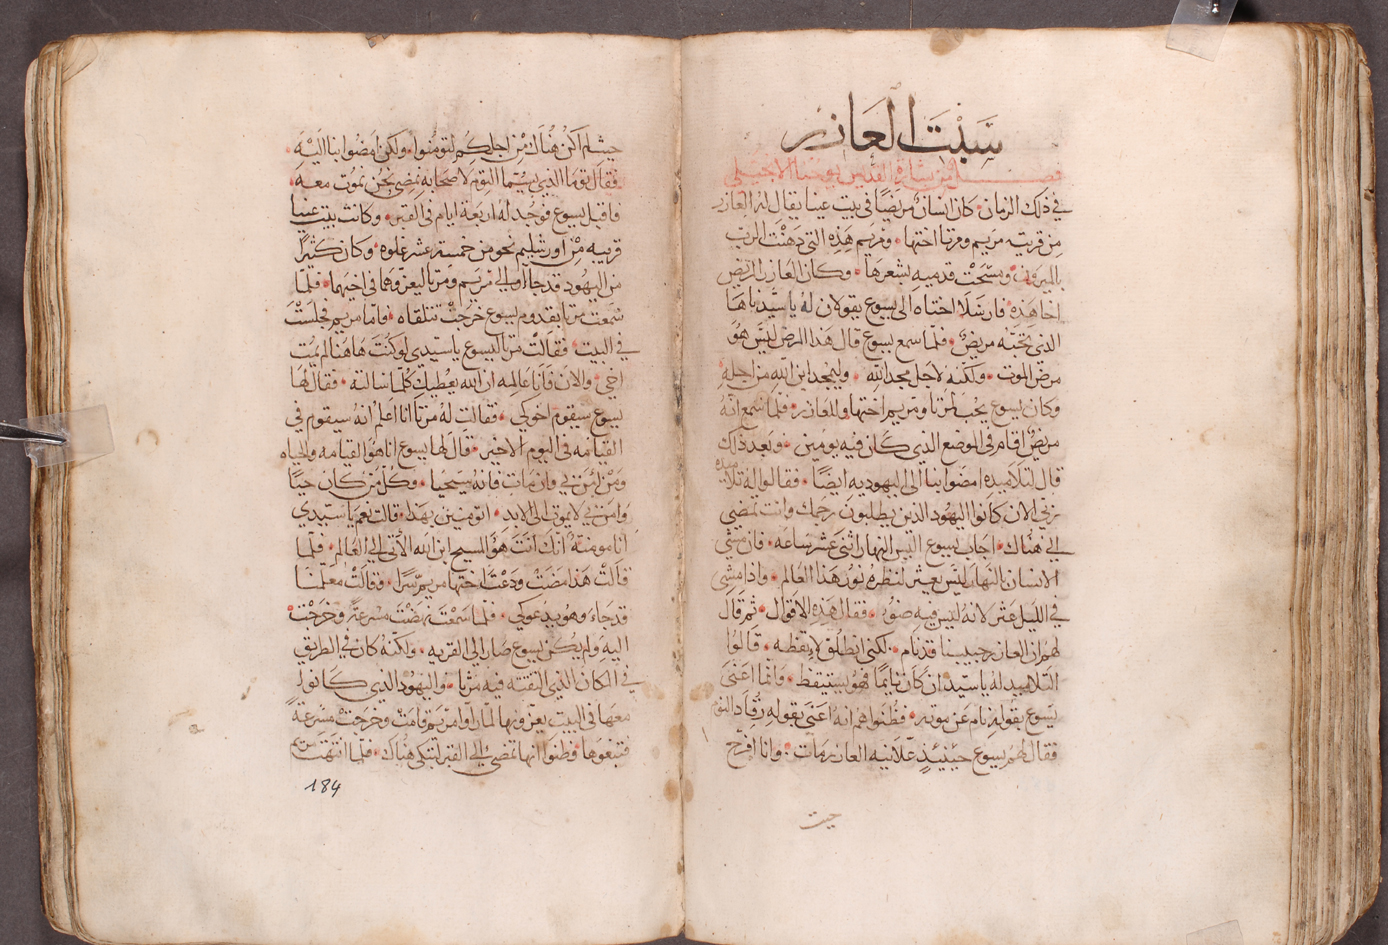 سَبْتَ العَازر
فصل من بشارة القديس يوحنا الانجيلي
في ذلك الزمان كان انسانٌ مريضًا في بيت عنيا يقال له العازر
من قرية مريم ومرتا اختها ومريم هَذِه التي دَهنْت الرب
بالميرون ومسّحتْ قدميهِ بشعرهَا وكان العازر المريض
اخا هَذه فارسَلَا اختاه الى يسوع يقولان لهُ ياسيّدنا هَا
الذي تحبّه مريضٌ فلمّا سمع يسوع قال هذا المرض ليسَ هُوَ
مرض الموت ولكنه لاجل مجد الله وليمجد ابن الله من اجلهِ
وكان يسوع يحب لمرتا ومريم اختها والعازر فلمّا سمع انهُ
مريضٌ اقام في الموضع الذي كان فيه يومين وبَعد ذَلك
قال لتلاميذه امضوا بنا الى اليهوديه ايضًا فقالوا له تلاميذه
ربّي الان كانوا اليهود الذين يطلبون رجمك وانت تمضي
الى هناك اجاب يسوع اليس النهار اثنى عشر ساعه فان مشى
الانسان بالنهار ليسَ يعثر لنظره نور هَذا العالم واذا مشى
في الليل عثر لانهُ ليس فيهِ ضوء فقال هَذِه الاقوال ثم قال
لهم ان العازر حبيبنا قد نام لكنى انطلق لايقظه قالوا
التلاميد له ياسيّد ان كان نايمًا فهُو يستيقظ وانما اعنَى
يسوع بقولهِ نام عن موته فظنوا هم انهُ اعنَى بقوله رُقاد النوم
فقال لهم يسوع حينيئذٍ علانيه العازر مات وانا افرح
حيت
حيتُ لم اكن هُناك من اجلكم لتومنوا ولكن امضوا بنا اليهِ
فقال توما الذي يسمّا التوم لاصحابه نمضي نحن نموت معه
فاقبل يسوع فوجد لهُ اربعة ايام في القبر وكانت بيت عنيا
قريبه من اورشليم نحو من خمسة عشر غلوه وكان كثيرًا
من اليهود قد جاأوا الى مريم ومرتا ليعزّوها في اخيهما فلمّا
سمعت مرتا بقدوم يسوع خرجتْ تتلقاه فامّا مريم فجلستْ
في البيت فقالت مرتا ليسوع ياسيّدي لو كنتَ هاهُنا لم يمُت
اخي والان فانا عالمه ان الله يعُطيك كلّما سالته فقال لهَا
يسوع سيقوم اخوكي فقالت لهُ مرتا انا اعلم انهُ سيقوم في
القيامه في اليوم الاخير قال لها يسوع انا هُو القيامه والحياه
ومَنْ يُؤمن بي فان مات فانه سيحيا وكل مَن كان حيًا
وامن بي لا يموت الى الابد اتومنين بهَذا قالت نعم ياسيّدي
انا مومنةٌ انكَ انتَ هَو المسيح ابن الله الآتى الى العالم فلمّا
قالت هَذا مضت ودَعتْ اختها مريم سّرًا وقالتْ معلمنا
قد جاءَ وهُو يدعوكي فلمّا سمعت نهضت مسرعةً وخرجت
اليهِ ولم يكن يسوع صَار الى القريه ولكنّهُ كان في الطريق
في المكان الذي القتهُ فيه مرتا واليهُود الذي كانوا
معهَا في البيت يعزونها لمّا راوا مريم قامت وخرجتْ مسرعةً
فتبعوها فظنّوا انها تمضي الى القبر لتبكى هناك فلمّا انتهت مريم
184